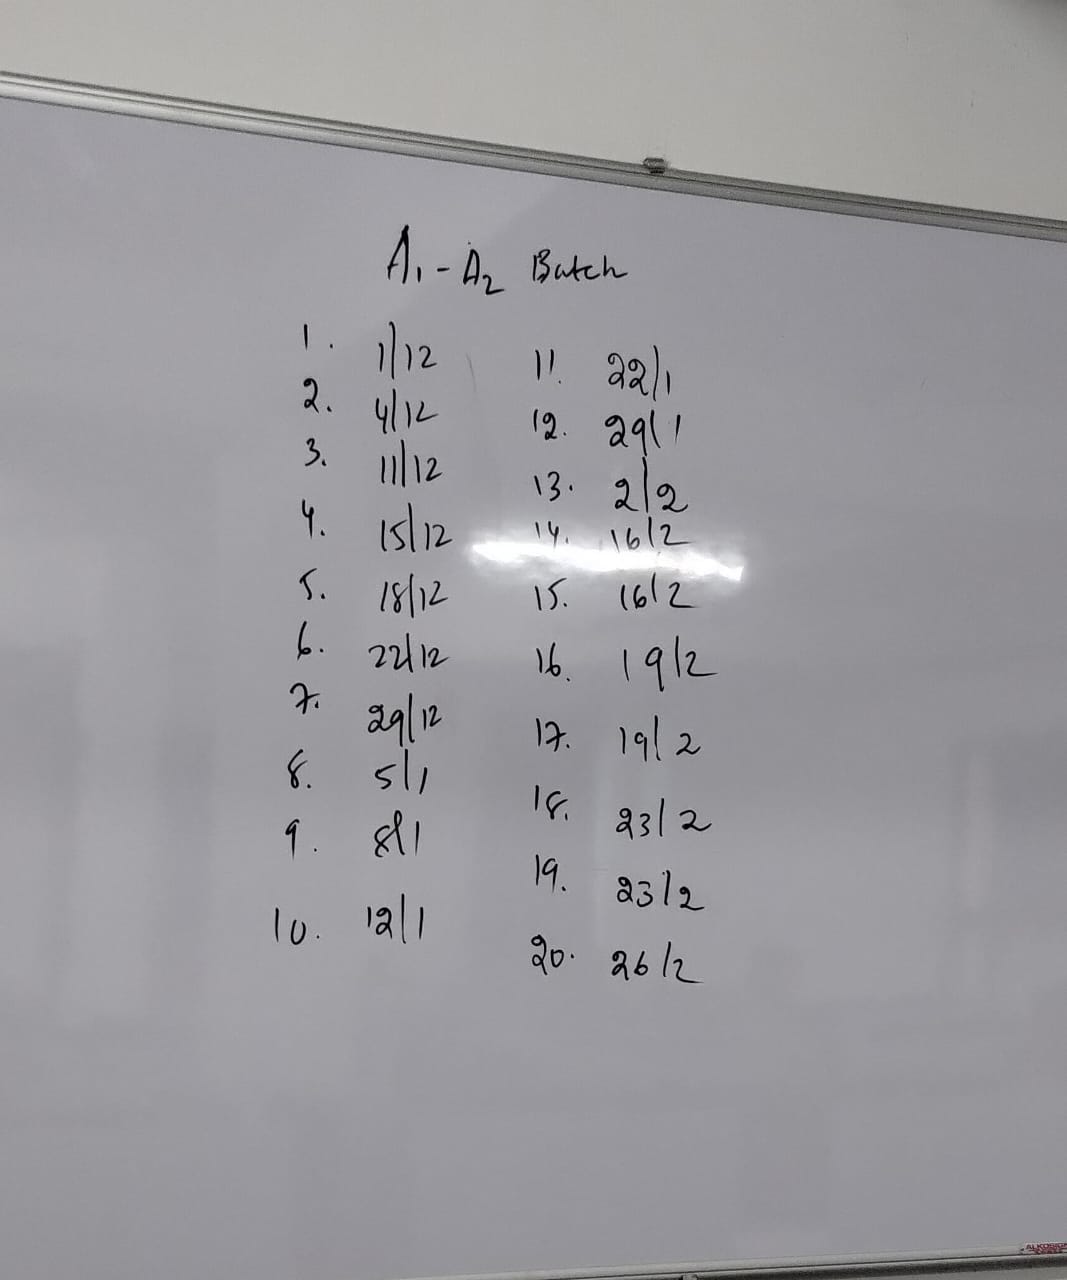 A1-A2 Batch
1. 1/12
2. 4/12
3. 11/12
4. 15/12
5. 18/12
6. 22/12
7. 29/12
8. 5/1
9. 8/1
10. 12/1
11. 22/1
12. 29/1
13. 2/2
14. 16/2
15. 16/2
16. 19/2
17. 19/2
18. 23/2
19. 23/2
20. 26/2